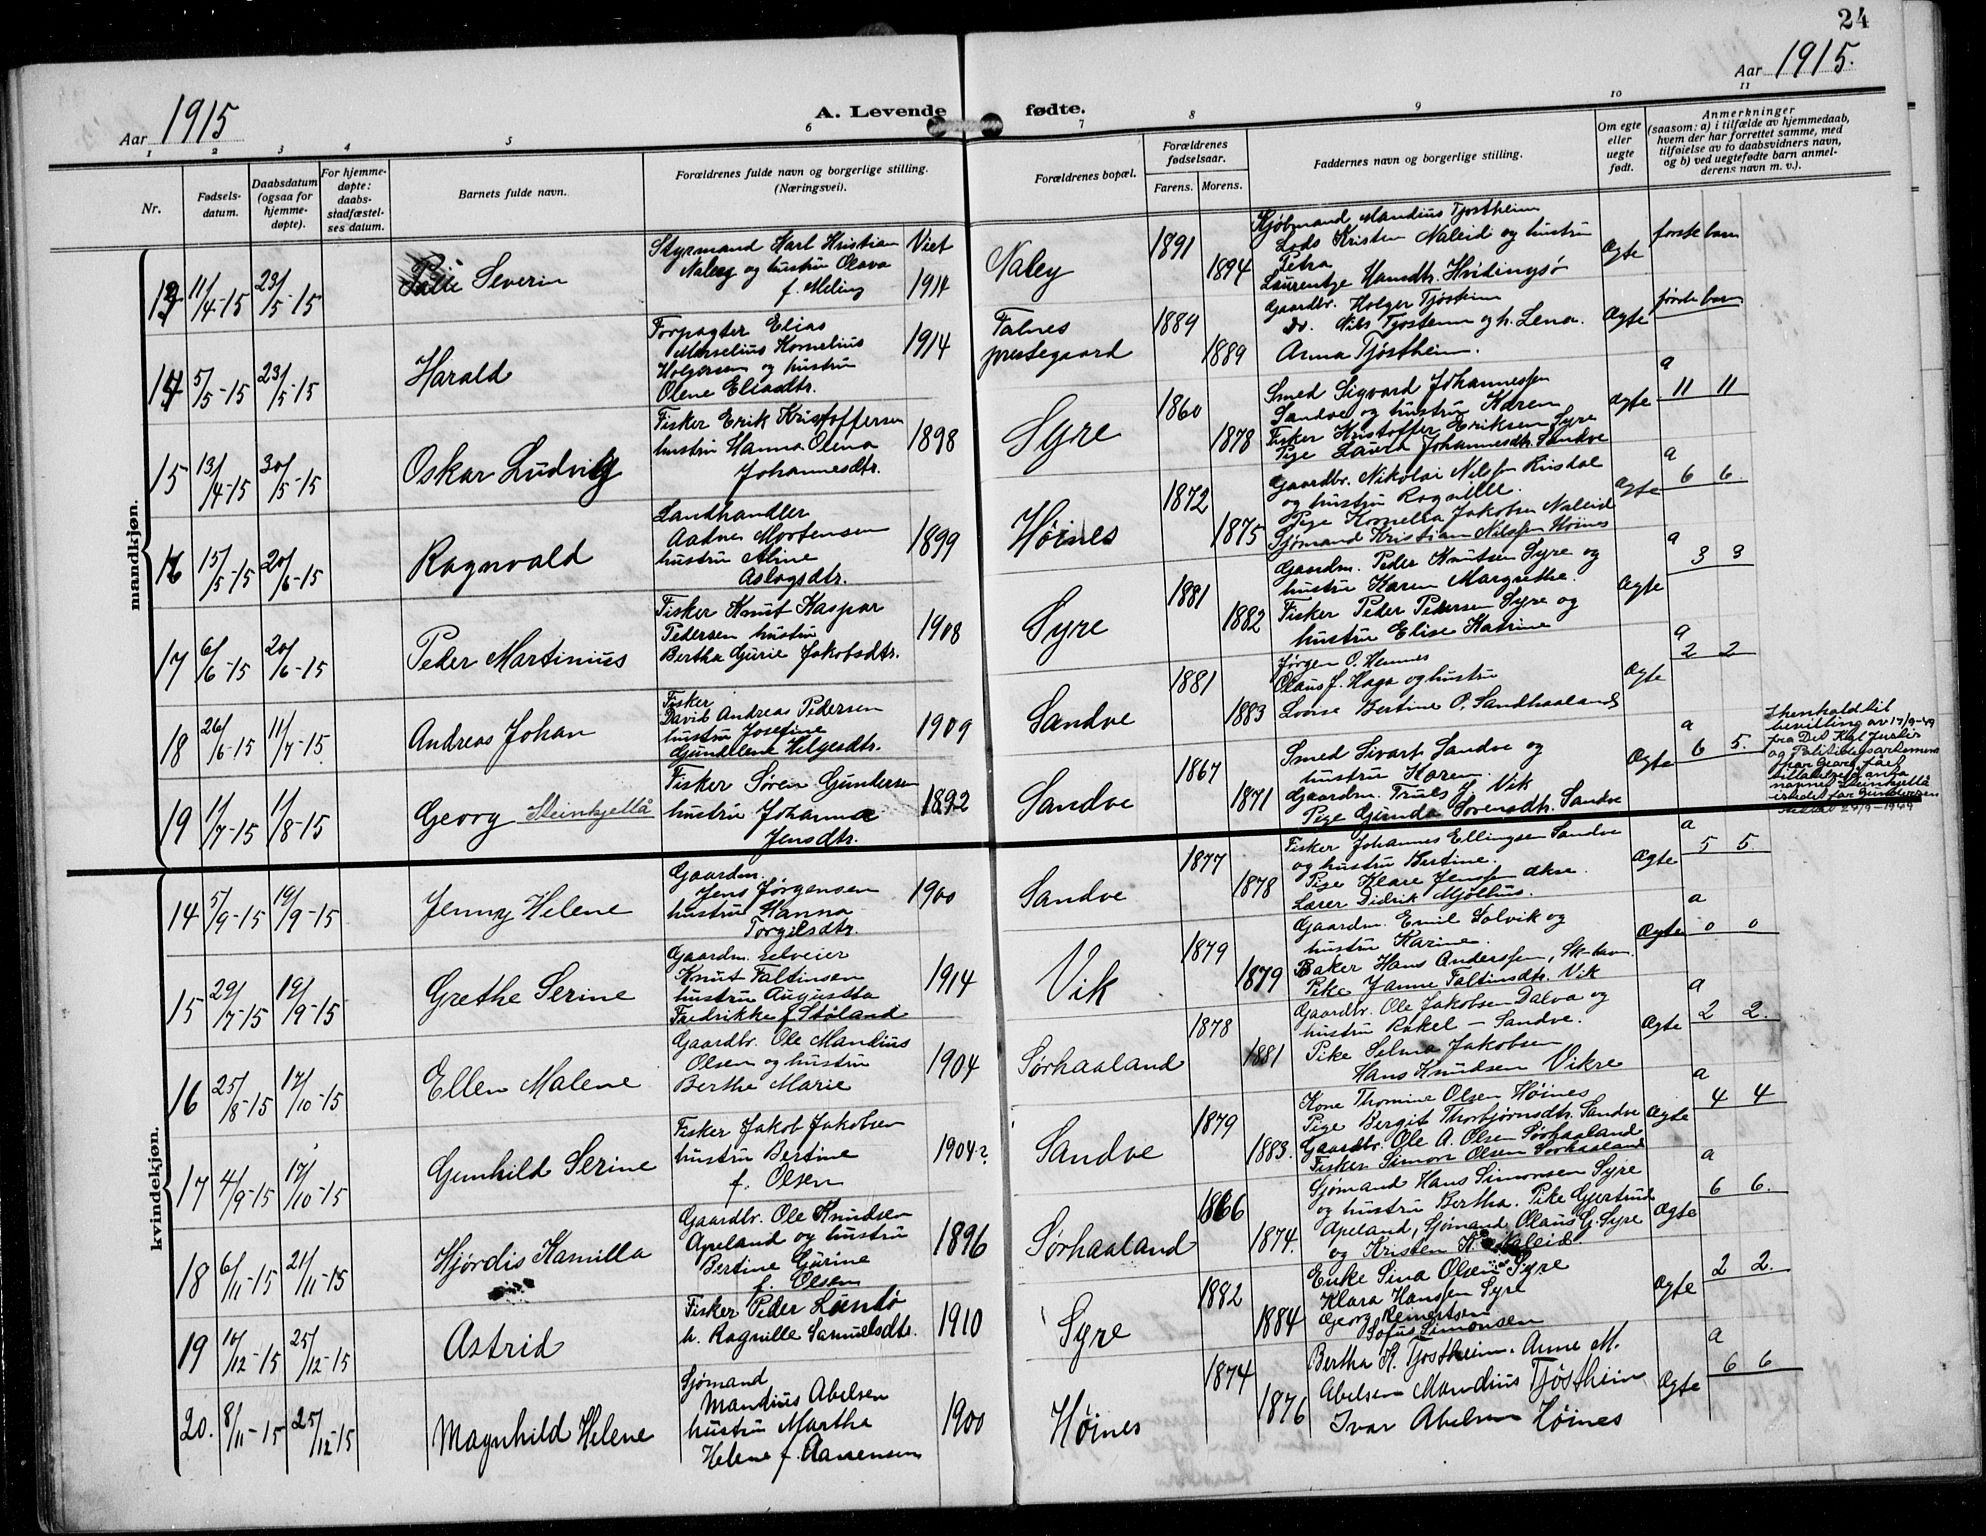 24
Aar 1915
A. Levende fødte.
Aar 1915.
1 2 3 4 5 6 7 8 9 10 11
Nr.
Fødsels-
datum.
Daabsdatum
(ogsaa for
hjemme-
døpte).
For hjemme-
døpte:
daabs-
stadfæstel-
ses datum.
Barnets fulde navn.
Forældrenes fulde navn og borgerlige stilling.
(Næringsvei).
Forældrenes bopæl.
Forældrenes
fødselsaar.
Farens. Morens.
Faddernes navn og borgerlige stilling.
Om egte
eller
uegte
født.
Anmerkninger
(saasom: a) i tilfælde av hjemmedaab,
hvem der har forrettet samme, med
tilføielse av to daabsvidners navn,
og b) ved uegtefødte barn anmel-
derens navn m. v.).
mandkjøn.
13 11/4-15 23/5-15
Severin
Styrmand Karl Kristian
Naley og hustru Olava
f. Meling
Viet
1914
Naley
1891
1894
Kjøbmand Mandius Tjøstheim
Lods Kristen Naleid og hustru
Petra
Laurentze Hansdtr. Hvitingsø
Ægte
første barn
14 5/5-15 23/5-15
Harald
Forpagter Elias
Marselius Kornelius
Holgersen og hustru
Olene Eliasdtr.
1914
Falnes
prestegaard
1889
1889
Gaardbr. Holger Tjøstheim
Do. Nils Tjøstem og h. Lena.
Anna Tjøstheim.
Ægte
første barn
15 13/4-15 30/5-15
Oskar Ludvig
Fisker Erik Kristoffersen
hustru Hanna Olena
Johannesdtr.
1898
Syre
1860
1878
Smed Sigvard Johannessen
Sandve og hustru Karen
Fisker Kristoffer Eriksen Syre
Pige Laura Johannesdtr. Sandve
Ægte
a
11 11
16 15/5-15 20/6-15
Ragnvald
Landhandler
Aadne Mortensen
hustru Aline
Aslagsdtr.
1899
Høines
1872
1875
Gaardbr. Nikolai Nilssen Kristal
og hustru Ragnille.
Pige Kornelia Jakobsen Naleid
Sjømand Kristian Nilssen Høines
Ægte
a
6 6
17 6/6-15 20/6-15
Peder Martinius
Fisker Knut Kaspar
Pedersen hustru
Bertha Gurie Jakobsdtr.
1908
Syre
1881
1882
Gaardm. Peder Knutsen Syre og
hustru Karen Margrethe.
Fisker Peder Pedersen Syre og
hustru Elise Katrine
Ægte
a
3 3
18 26/6-15 11/7-15.
Andreas Johan
Fisker
David Andreas Pedersen
hustru Josefine
Gundelene Helgesdtr.
1909
Sandve
1881
1883
Jørgen O. Hemnes
Olaus J. Haga og hustru
Lovise Bertine O. Sandhaaland
Ægte
a
2 2
19 1/7-15 1/8-15
Georg Steinkjellå
Fisker Søren Gundersen
hustru Johanna
Jensdtr.
1892
Sandve
1867
1871
Smed Sivart Sandve og
hustru Karen.
Gaardm. Truls J. Vik
Pige Gunda Sørensdtr. Sandve
Ægte
a
6 5.
I henhold til
bevilling av 17/9-49
fra Det Kgl Justis
og Politidepartement
har Georg fått
tillatelse å anta
navnet Steinkjellå
istedet for Gundersen
24/9-1949
kvindekjøn.
14 5/9-15 19/9-15
Jenny Helene
Gaardm.
Jens Jørgensen
hustru Hanna
Torgilsdtr.
1900
Sandve
1877
1878
Fisker Johannes Ellingsen Sandve
og hustru Bertine.
Pige Klara Jenssen Akse.
Lærer Didrik Mjølhus.
Ægte
a
5 5.
15 29/7-15 19/9-15
Grethe Serine
Gaardm. Selveier
Knut Faltinsen
hustru Augustta
Fredrikke f Støland
1914
Vik
1879
1879
Gaardm. Emil Solvik og
hustru Karine.
Baker Hans Anderssen, Sk-havn
Pike Janne Faltinsdtr. Vik
Ægte
a
0 0
16 25/8-15 17/10-15
Ellen Malene
Gaardbr. Ole Mandius
Olsen og hustru
Berthe Marie
1904
Sørhaaland
1878
1881
Gaardbr. Ole Jakobsen Dalva og
hustru Rakel - Sandve.
Pike Selma Jakobsen
Hans Knudsen Vikre
Ægte
a
2 2.
17 4/9-15 17/10-15
Gunhild Serine
Fisker Jakob Jakobsen
hustru Bertine
f. Olsen
1904?
Sandve
1879
1883.
Kone Thomine Olsen Høines
Pige Bergit Thorbjørnsdtr. Sandve
Gaardbr. Ole A. Olsen Sørhaaland
Fisker Simon Olsen Sørhaaland
Ægte
a
4 4
18 6/11-15 21/11-15
Hjørdis Kamilla
Gaardbr. Ole Knudsen
Apeland og hustru
Bertine Gurine
f. Olsen
1896
Sørhaaland
1866
1874.
Sjømand Hans Simonsen Syre
og hustru Bertha. Pike Gjertrud
Apeland, Sjømand Olaus G. Syre
og Kristen K. Naleid.
Ægte
a
6 6.
19 10/12-15 25/12-15
Astrid
Fisker Peder Lundø
h. Ragnille Samuelsdtr.
1910
Syre
1882
1884
Enke Sina Olsen Syre
Klara Hanssen Syre
Georg Reinertsen
Sofus Simonsen
Ægte
2 2.
20. 8/11-15 25/12-15
Magnhild Helene
Sjømand
Mandius Abelsen
hustru Martha
Helene f. Aanensen
1900
Høines
1874
1876
Bertha K. Tjøstheim. Anne M.
Abelsen Mandius Tjøstheim
Ivar Abelsen Høines
Ægte
a
6 6